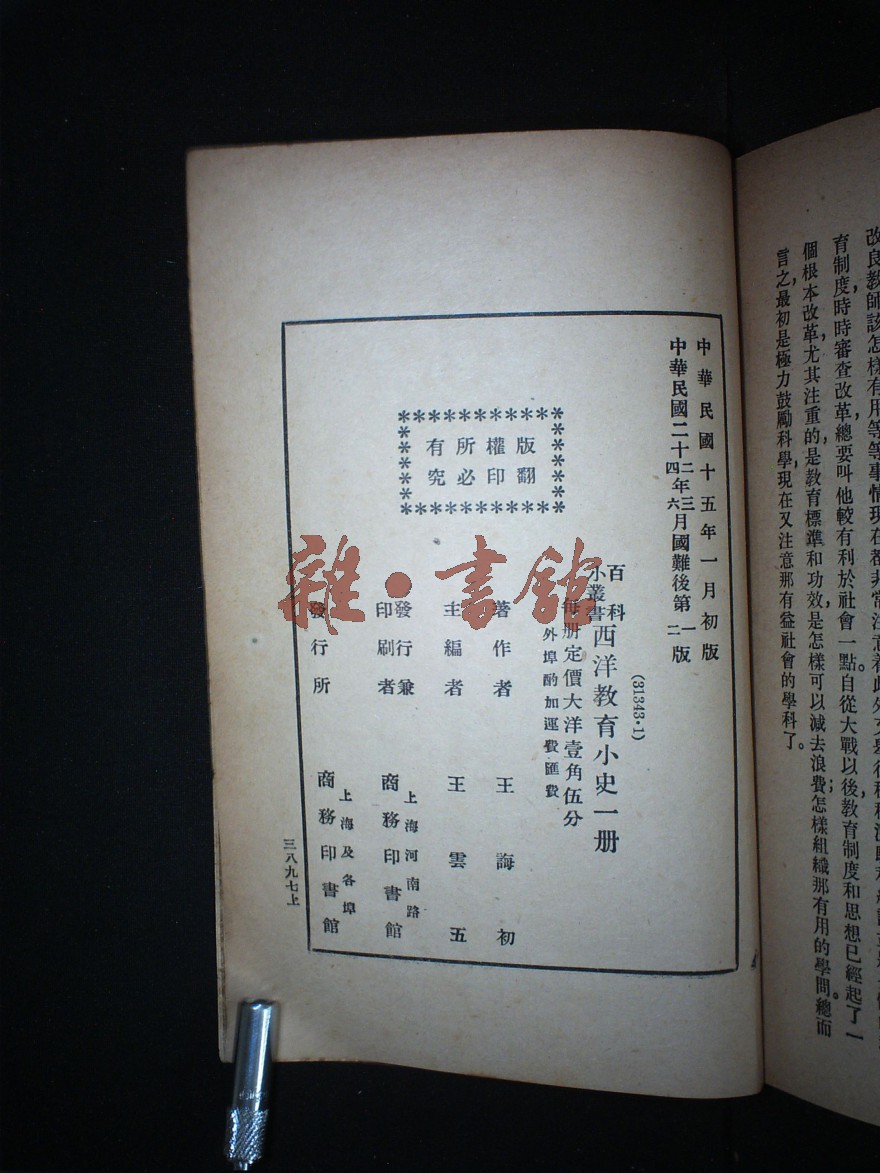 改良教師該怎樣有用等等事情現在都非常注意着此外
育制度，時時審查改革，總要叫他較有利於社會一點。自從大戰以後，教育制度和思想已經起了一
個根本改革，尤其注重的，是教育標準和功效，是怎樣可以減去浪費；怎樣組織那有用的學問。總而
言之，最初是極力鼓勵科學，現在又注意那有益社會的學科了。
中華民國十五年一月初版
中華民國二十二年三月國難後第一版
四 六 二
(31343·1)
百科小叢書 西洋教育小史一册
每册定價大洋壹角伍分
外埠酌加運費匯費
版權所有
翻印必究
著作者 王誨初
主編者 王雲五
發行兼印刷者 上海河南路 商務印書館
發行所 上海及各埠 商務印書館
三八九七上
雜·書館